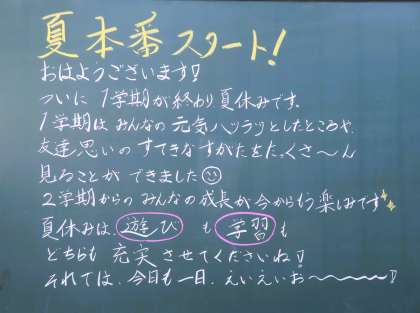 夏本番スタート!
おはようございます!
ついに 1学期が終わり夏休みです。
1学期は みんなの 元気ハツラツとしたところや、
友達思いの すてきなすがたをたっくさ〜ん
見ることが できました☺
2学期からの みんなの成長が今から楽しみです✨
夏休みは、遊び も 学習 も
どちらも 充実 させてくださいね!
それでは、今日も一日、えいえいお〜〜〜!